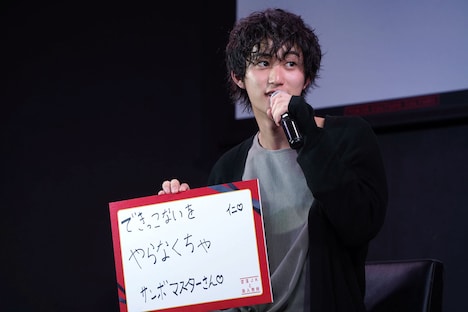 できっこないを
仁♡
やらなくちゃ
サンボマスターさん♡